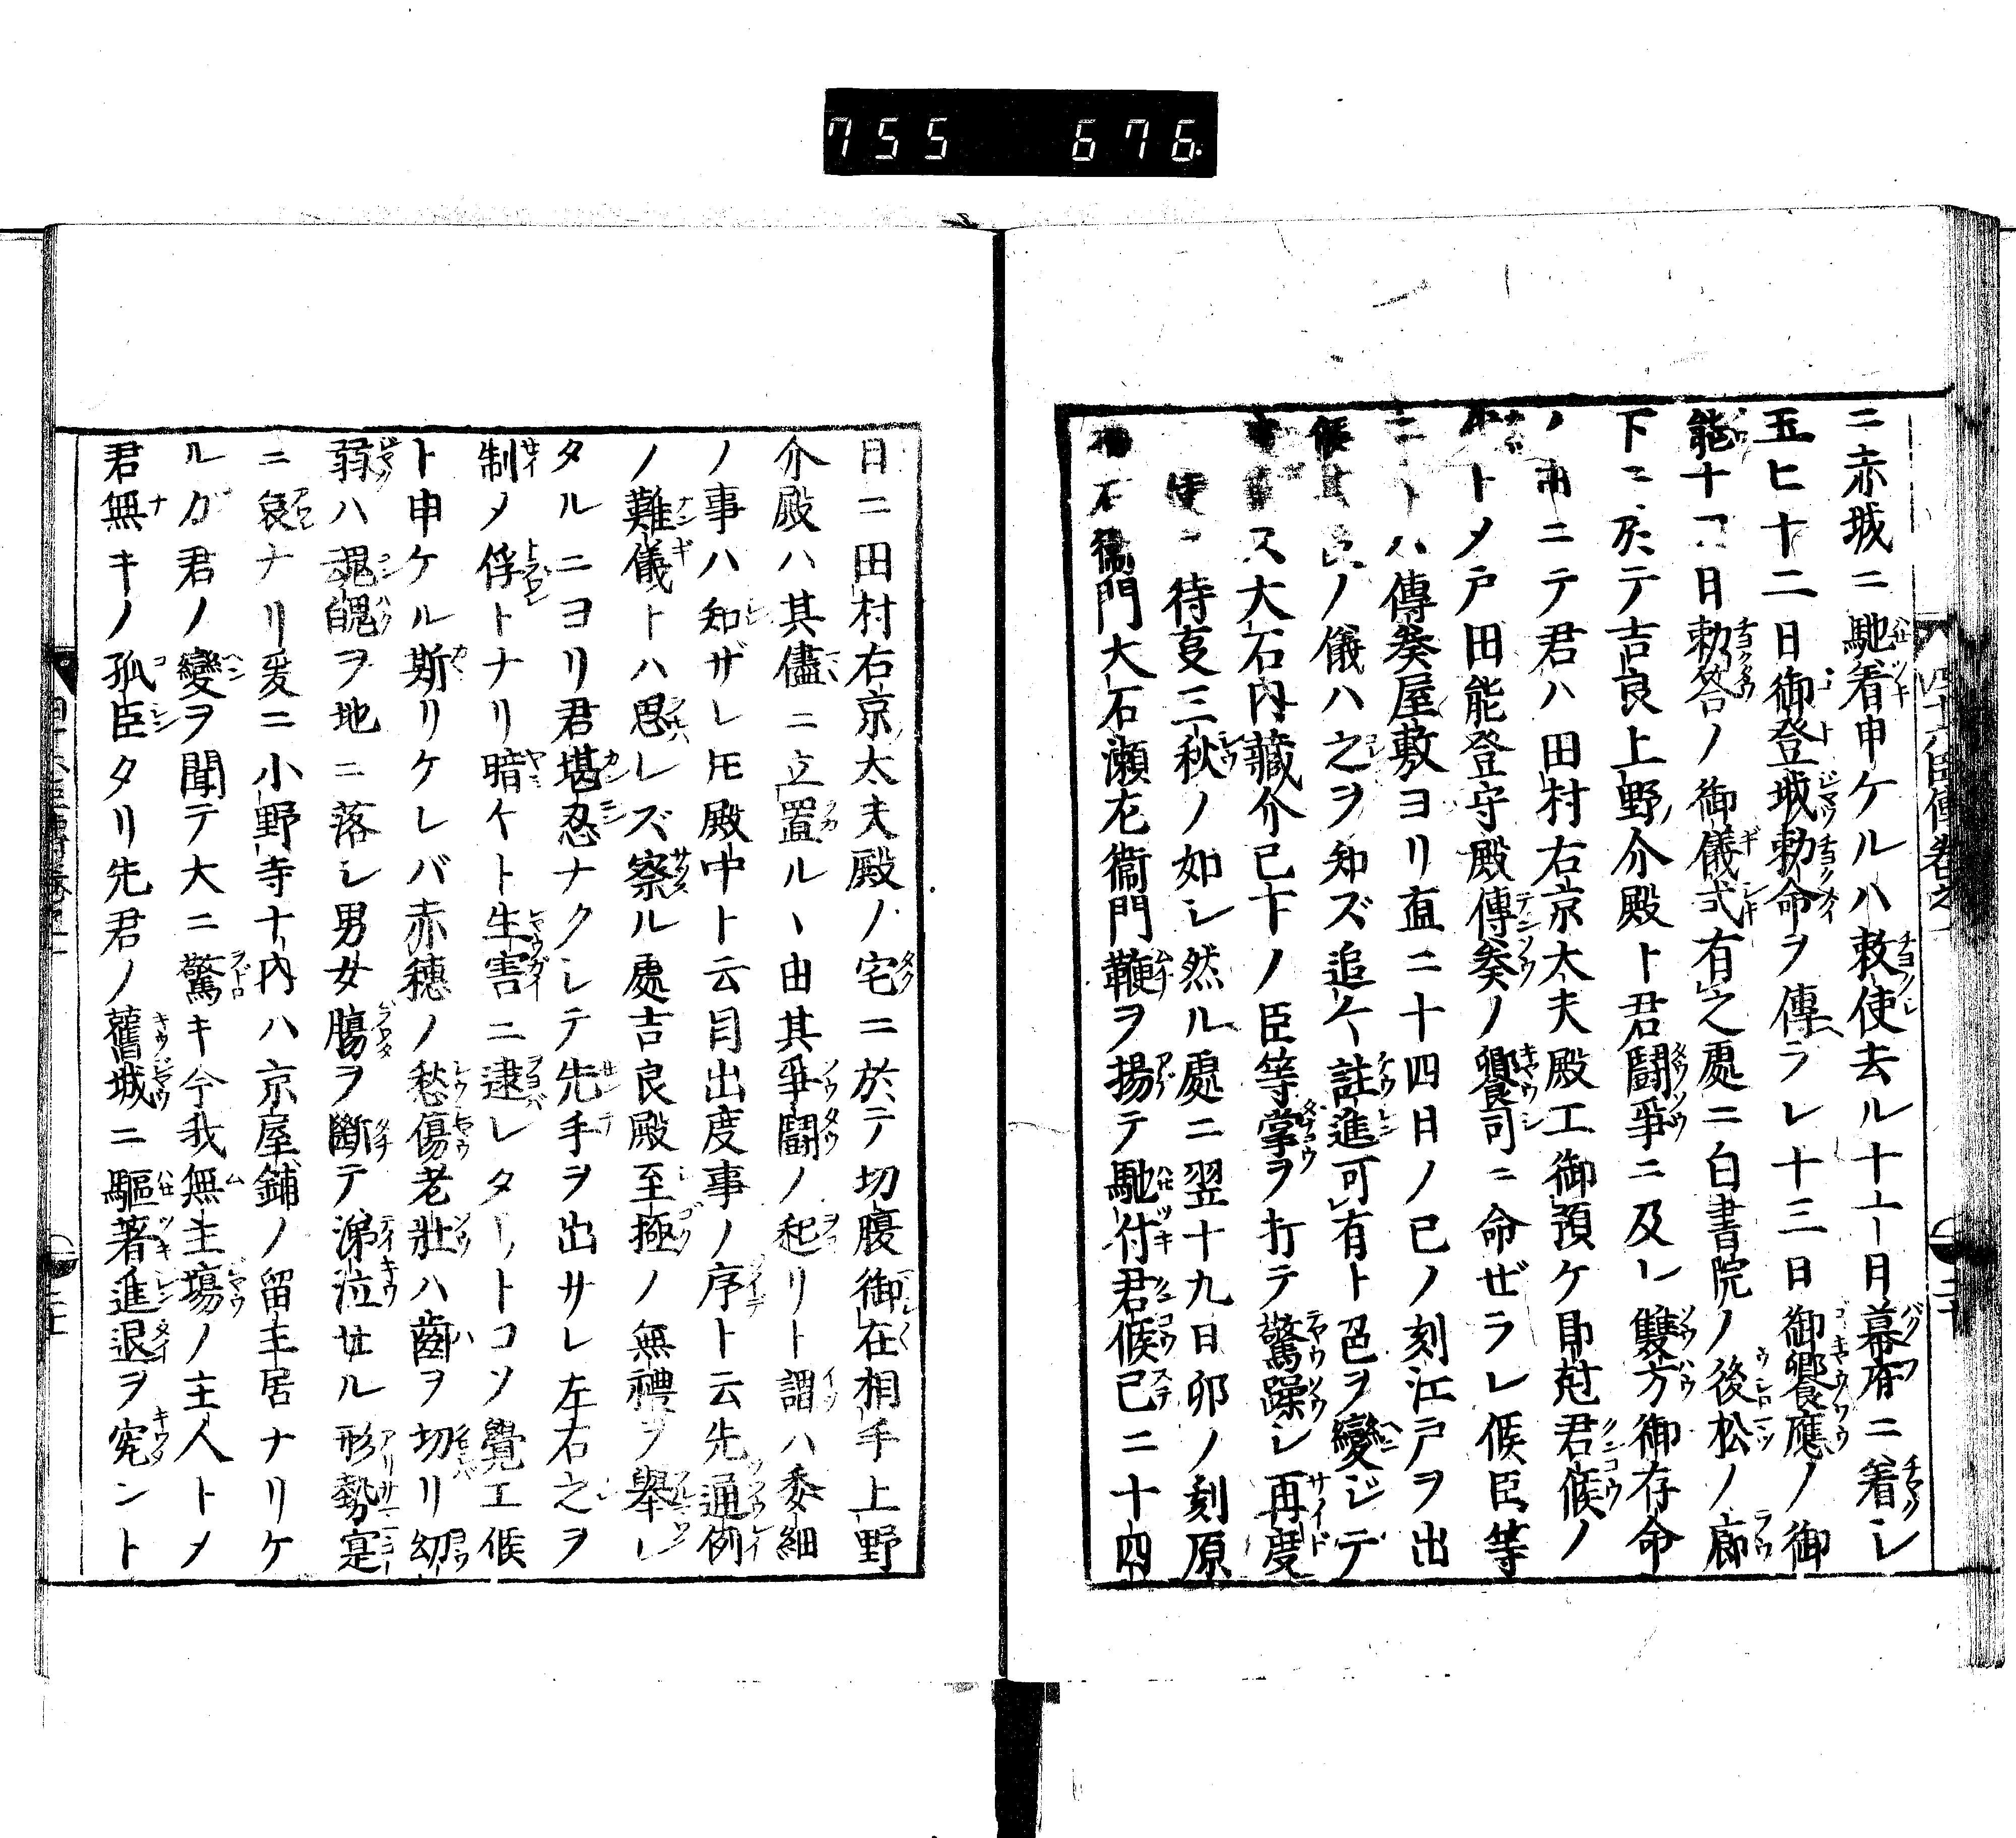 755 676
ニ赤城ニ馳着申ケルハ敕使去ル十一日幕府ニ着シ
玉ヒ十二日御登城勅命ヲ傳ラレ十三日御饗應ノ御
能十四日勅答ノ御儀式有之處ニ白書院ノ後松ノ廊
下ニ於テ吉良上野介殿ト君鬪爭ニ及レ雙方御存命
ノ ニテ君ハ田村右京太夫殿エ御預ケ即尅君候ノ
トメ戸田能登守殿傳奏ノ饗司ニ命ゼラレ候臣等
ハ傳奏屋敷ヨリ直ニ十四日ノ巳ノ刻江戸ヲ出
ノ儀ハ之ヲ知ズ追ケ註進可有ト邑ヲ變ジテ
ス大石内藏介已下ノ臣等掌ヲ打テ驚躁シ再度
待叓三秋ノ如シ然ル處ニ翌十九日卯ノ刻原
衞門大石瀬左衞門鞭ヲ揚テ馳付君候已ニ十四
日ニ田村右京太夫殿ノ宅ニ於テ切腹御在相手上野
介殿ハ其儘ニ立置ルヽ由其爭鬪ノ起リト謂ハ委細
ノ事ハ知ザレ𪜈殿中ト云目出度事ノ序ト云先通例
ノ難儀トハ思レズ察ル處吉良殿至極ノ無禮ヲ擧レ
タルニヨリ君堪忍ナクレテ先手ヲ出サレ左右之ヲ
制メ俘トナリ暗ケト生害ニ逮レタリトコソ覺エ候
ト申ケル斯リケレバ赤穂ノ愁傷老壯ハ齒ヲ切リ幼
弱ハ魂魄ヲ地ニ落シ男女膓ヲ斷テ涕泣せル形勢寔
ニ哀ナリ爰ニ小野寺十内ハ京屋鋪ノ留主居ナリケ
ルガ君ノ變ヲ聞テ大ニ驚キ今我無主塲ノ主人トメ
君無キノ孤臣タリ先君ノ舊城ニ驅著進退ヲ究ント